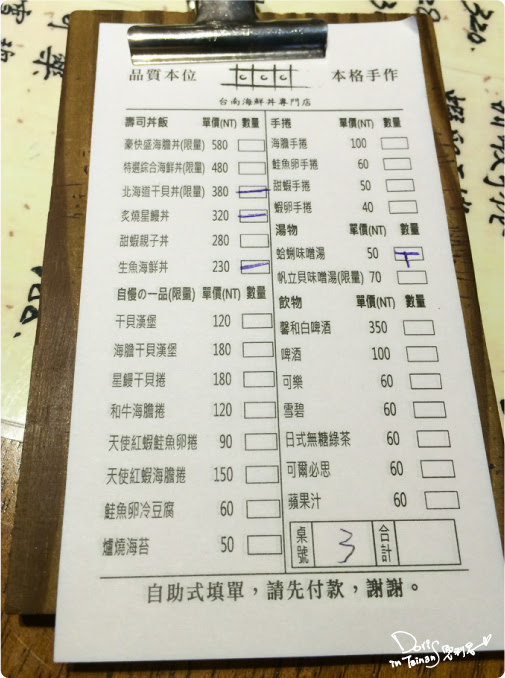 品質本位 ccc 本格手作
台南海鮮丼專門店
壽司丼飯 單價(NT) 數量
豪快盛海膽丼(限量) 580
特選綜合海鮮丼(限量) 480
北海道干貝丼(限量) 380 一
炙燒星鰻丼 320 一
甜蝦親子丼 280
生魚海鮮丼 230 一
自慢の一品(限量) 單價(NT) 數量
干貝漢堡 120
海膽干貝漢堡 180
星鰻干貝捲 180
和牛海膽捲 120
天使紅蝦鮭魚卵捲 90
天使紅蝦海膽捲 150
鮭魚卵冷豆腐 60
爐燒海苔 50
手捲 單價(NT) 數量
海膽手捲 100
鮭魚卵手捲 60
甜蝦手捲 50
蝦卵手捲 40
湯物 單價(NT) 數量
蛤蜊味噌湯 50 T
帆立貝味噌湯(限量) 70
飲物 單價(NT) 數量
馨和白啤酒 350
啤酒 100
可樂 60
雪碧 60
日式無糖綠茶 60
可爾必思 60
蘋果汁 60
桌號 3 合計
自助式填單，請先付款，謝謝。
320
Doris
in Tainan